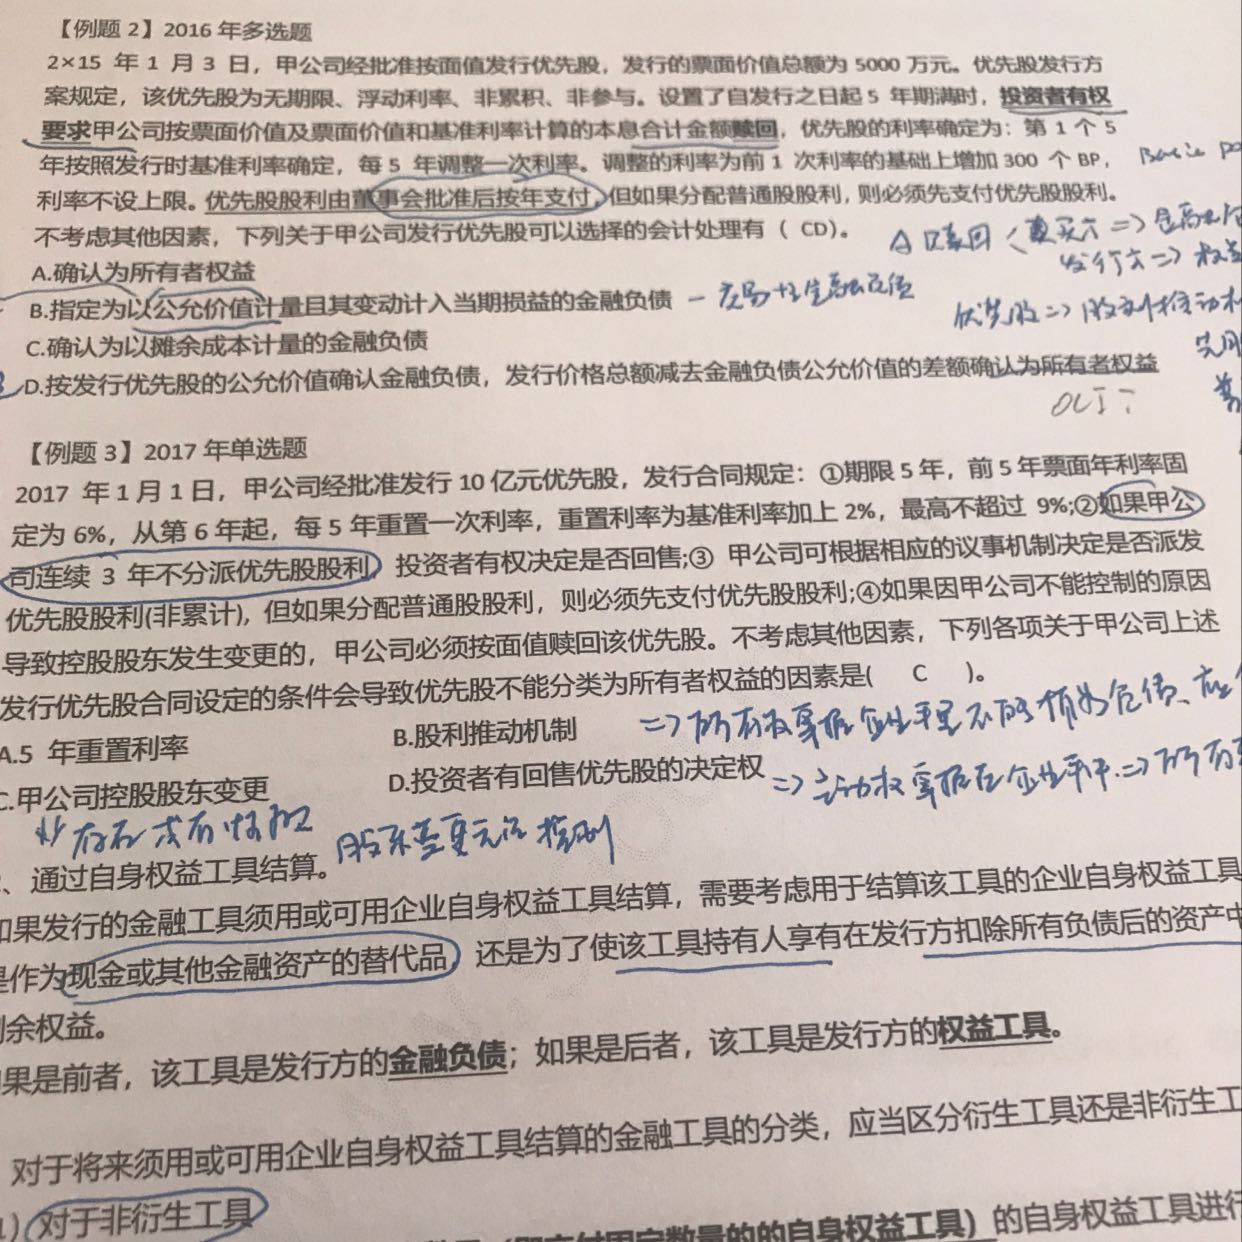 【例题 2】2016 年多选题
2×15 年 1 月 3 日，甲公司经批准按面值发行优先股，发行的票面价值总额为 5000 万元。优先股发行方
案规定，该优先股为无期限、浮动利率、非累积、非参与。设置了自发行之日起 5 年期满时，投资者有权
要求甲公司按票面价值及票面价值和基准利率计算的本息合计金额赎回，优先股的利率确定为：第 1 个 5
年按照发行时基准利率确定，每 5 年调整一次利率。调整的利率为前 1 次利率的基础上增加 300 个 BP，
利率不设上限。优先股股利由董事会批准后按年支付，但如果分配普通股股利，则必须先支付优先股股利。
不考虑其他因素，下列关于甲公司发行优先股可以选择的会计处理有（ CD）。
A.确认为所有者权益
B.指定为以公允价值计量且其变动计入当期损益的金融负债 - 交易性金融负债
C.确认为以摊余成本计量的金融负债
D.按发行优先股的公允价值确认金融负债，发行价格总额减去金融负债公允价值的差额确认为所有者权益
OCI？
【例题 3】2017 年单选题
2017 年 1 月 1 日，甲公司经批准发行 10 亿元优先股，发行合同规定：①期限 5 年，前 5 年票面年利率固
定为 6%，从第 6 年起，每 5 年重置一次利率，重置利率为基准利率加上 2%，最高不超过 9%;②如果甲公
司连续 3 年不分派优先股股利，投资者有权决定是否回售;③ 甲公司可根据相应的议事机制决定是否派发
优先股股利(非累计)，但如果分配普通股股利，则必须先支付优先股股利;④如果因甲公司不能控制的原因
导致控股股东发生变更的，甲公司必须按面值赎回该优先股。不考虑其他因素，下列各项关于甲公司上述
发行优先股合同设定的条件会导致优先股不能分类为所有者权益的因素是( C )。
A.5 年重置利率
B.股利推动机制
C.甲公司控股股东变更
D.投资者有回售优先股的决定权
股东变更无法控制
、通过自身权益工具结算。
如果发行的金融工具须用或可用企业自身权益工具结算，需要考虑用于结算该工具的企业自身权益工具
是作为现金或其他金融资产的替代品，还是为了使该工具持有人享有在发行方扣除所有负债后的资产中
剩余权益。
果是前者，该工具是发行方的金融负债；如果是后者，该工具是发行方的权益工具。
对于将来须用或可用企业自身权益工具结算的金融工具的分类，应当区分衍生工具还是非衍生工
) 对于非衍生工具
的自身权益工具）的自身权益工具进行